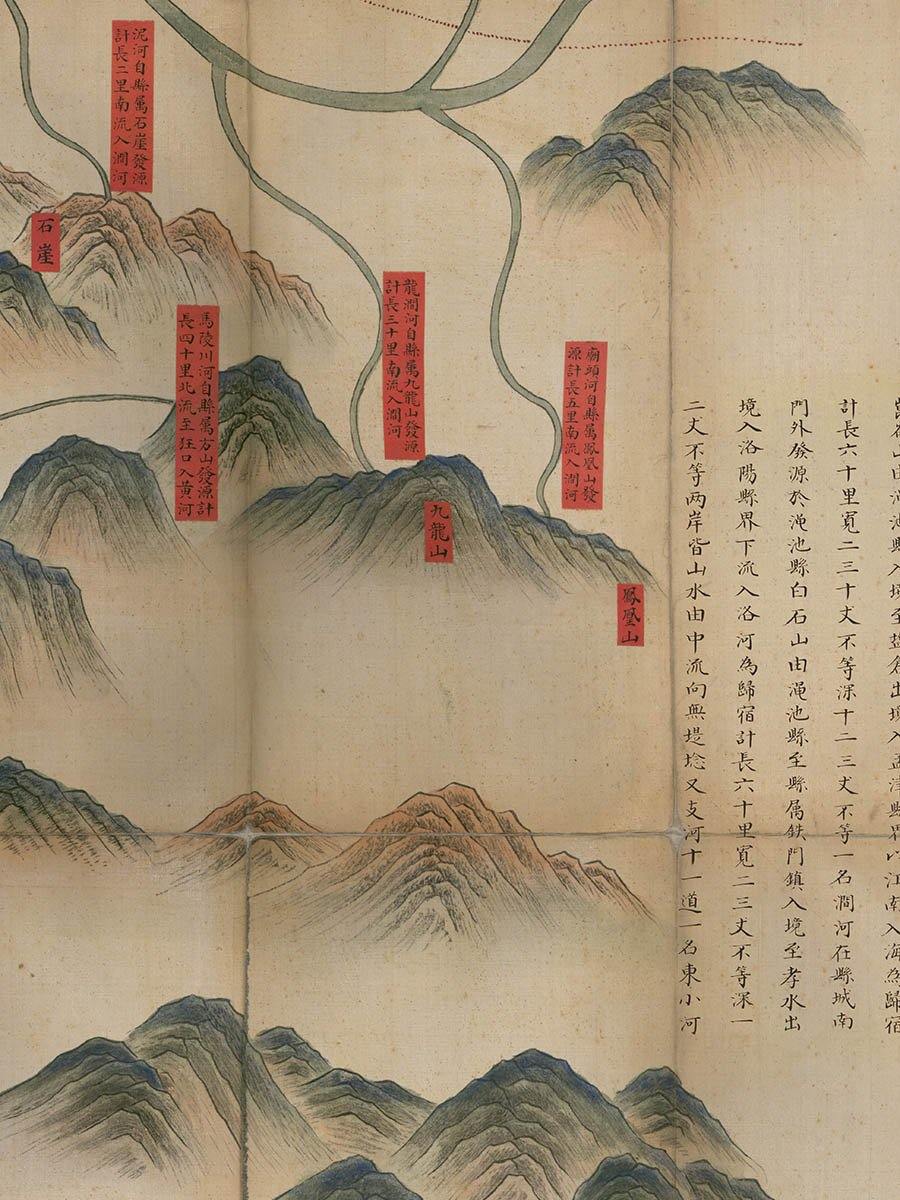 山由澠池縣入境至塩倉出境入孟津縣界以江南入海為歸宿
計長六十里寬二三十丈不等深十二三丈不等一名澗河在縣城南
門外發源於澠池縣白石山由澠池縣至縣属鉄門鎮入境至孝水出
境入洛陽縣界下流入洛河為歸宿計長六十里寬二三丈不等深一
二丈不等两岸皆山水由中流向無堤埝又支河十一道一名東小河
鳳凰山
廟頭河自縣属鳳凰山發
源計長五里南流入澗河
九龍山
龍澗河自縣属九龍山發源
計長三十里南流入澗河
馬陵川河自縣属方山發源計
長四十里北流至狂口入黄河
泥河自縣属石崖發源
計長二里南流入澗河
石崖